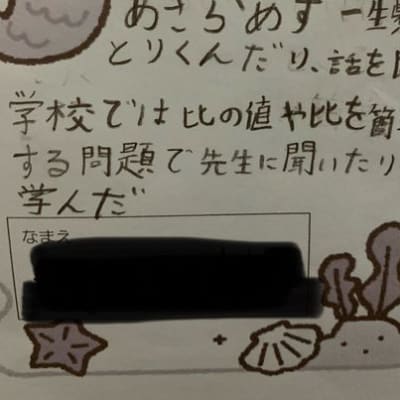 あきらめず一生
とりくんだり、話を
学校では比の値や比を簡
する問題で先生に聞いたり
学んだ
なまえ